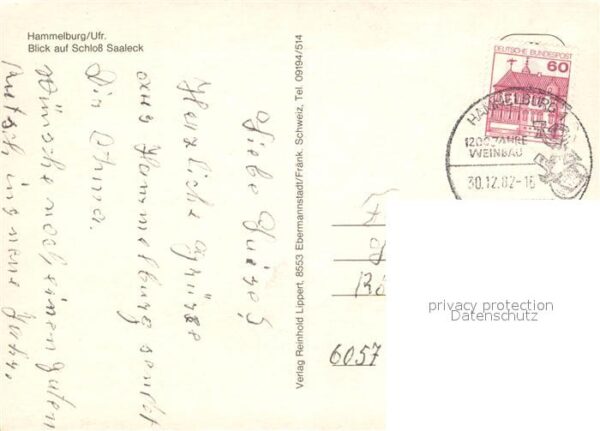 Hammelburg/Ufr.
Blick auf Schloß Saaleck
DEUTSCHE BUNDESPOST
60
HAMMELBURG 1
1200 JAHRE
WEINBAU
30.12.82-16
Verlag Reinhold Lippert, 8553 Ebermannstadt/Fränk. Schweiz, Tel. 09194/514
Liebe
Herzliche Grüsse
aus Hammelburg sendet
Dir
Wünsche noch einen guten
Rutsch ins neue Jahr.
6057
privacy protection
Datenschutz